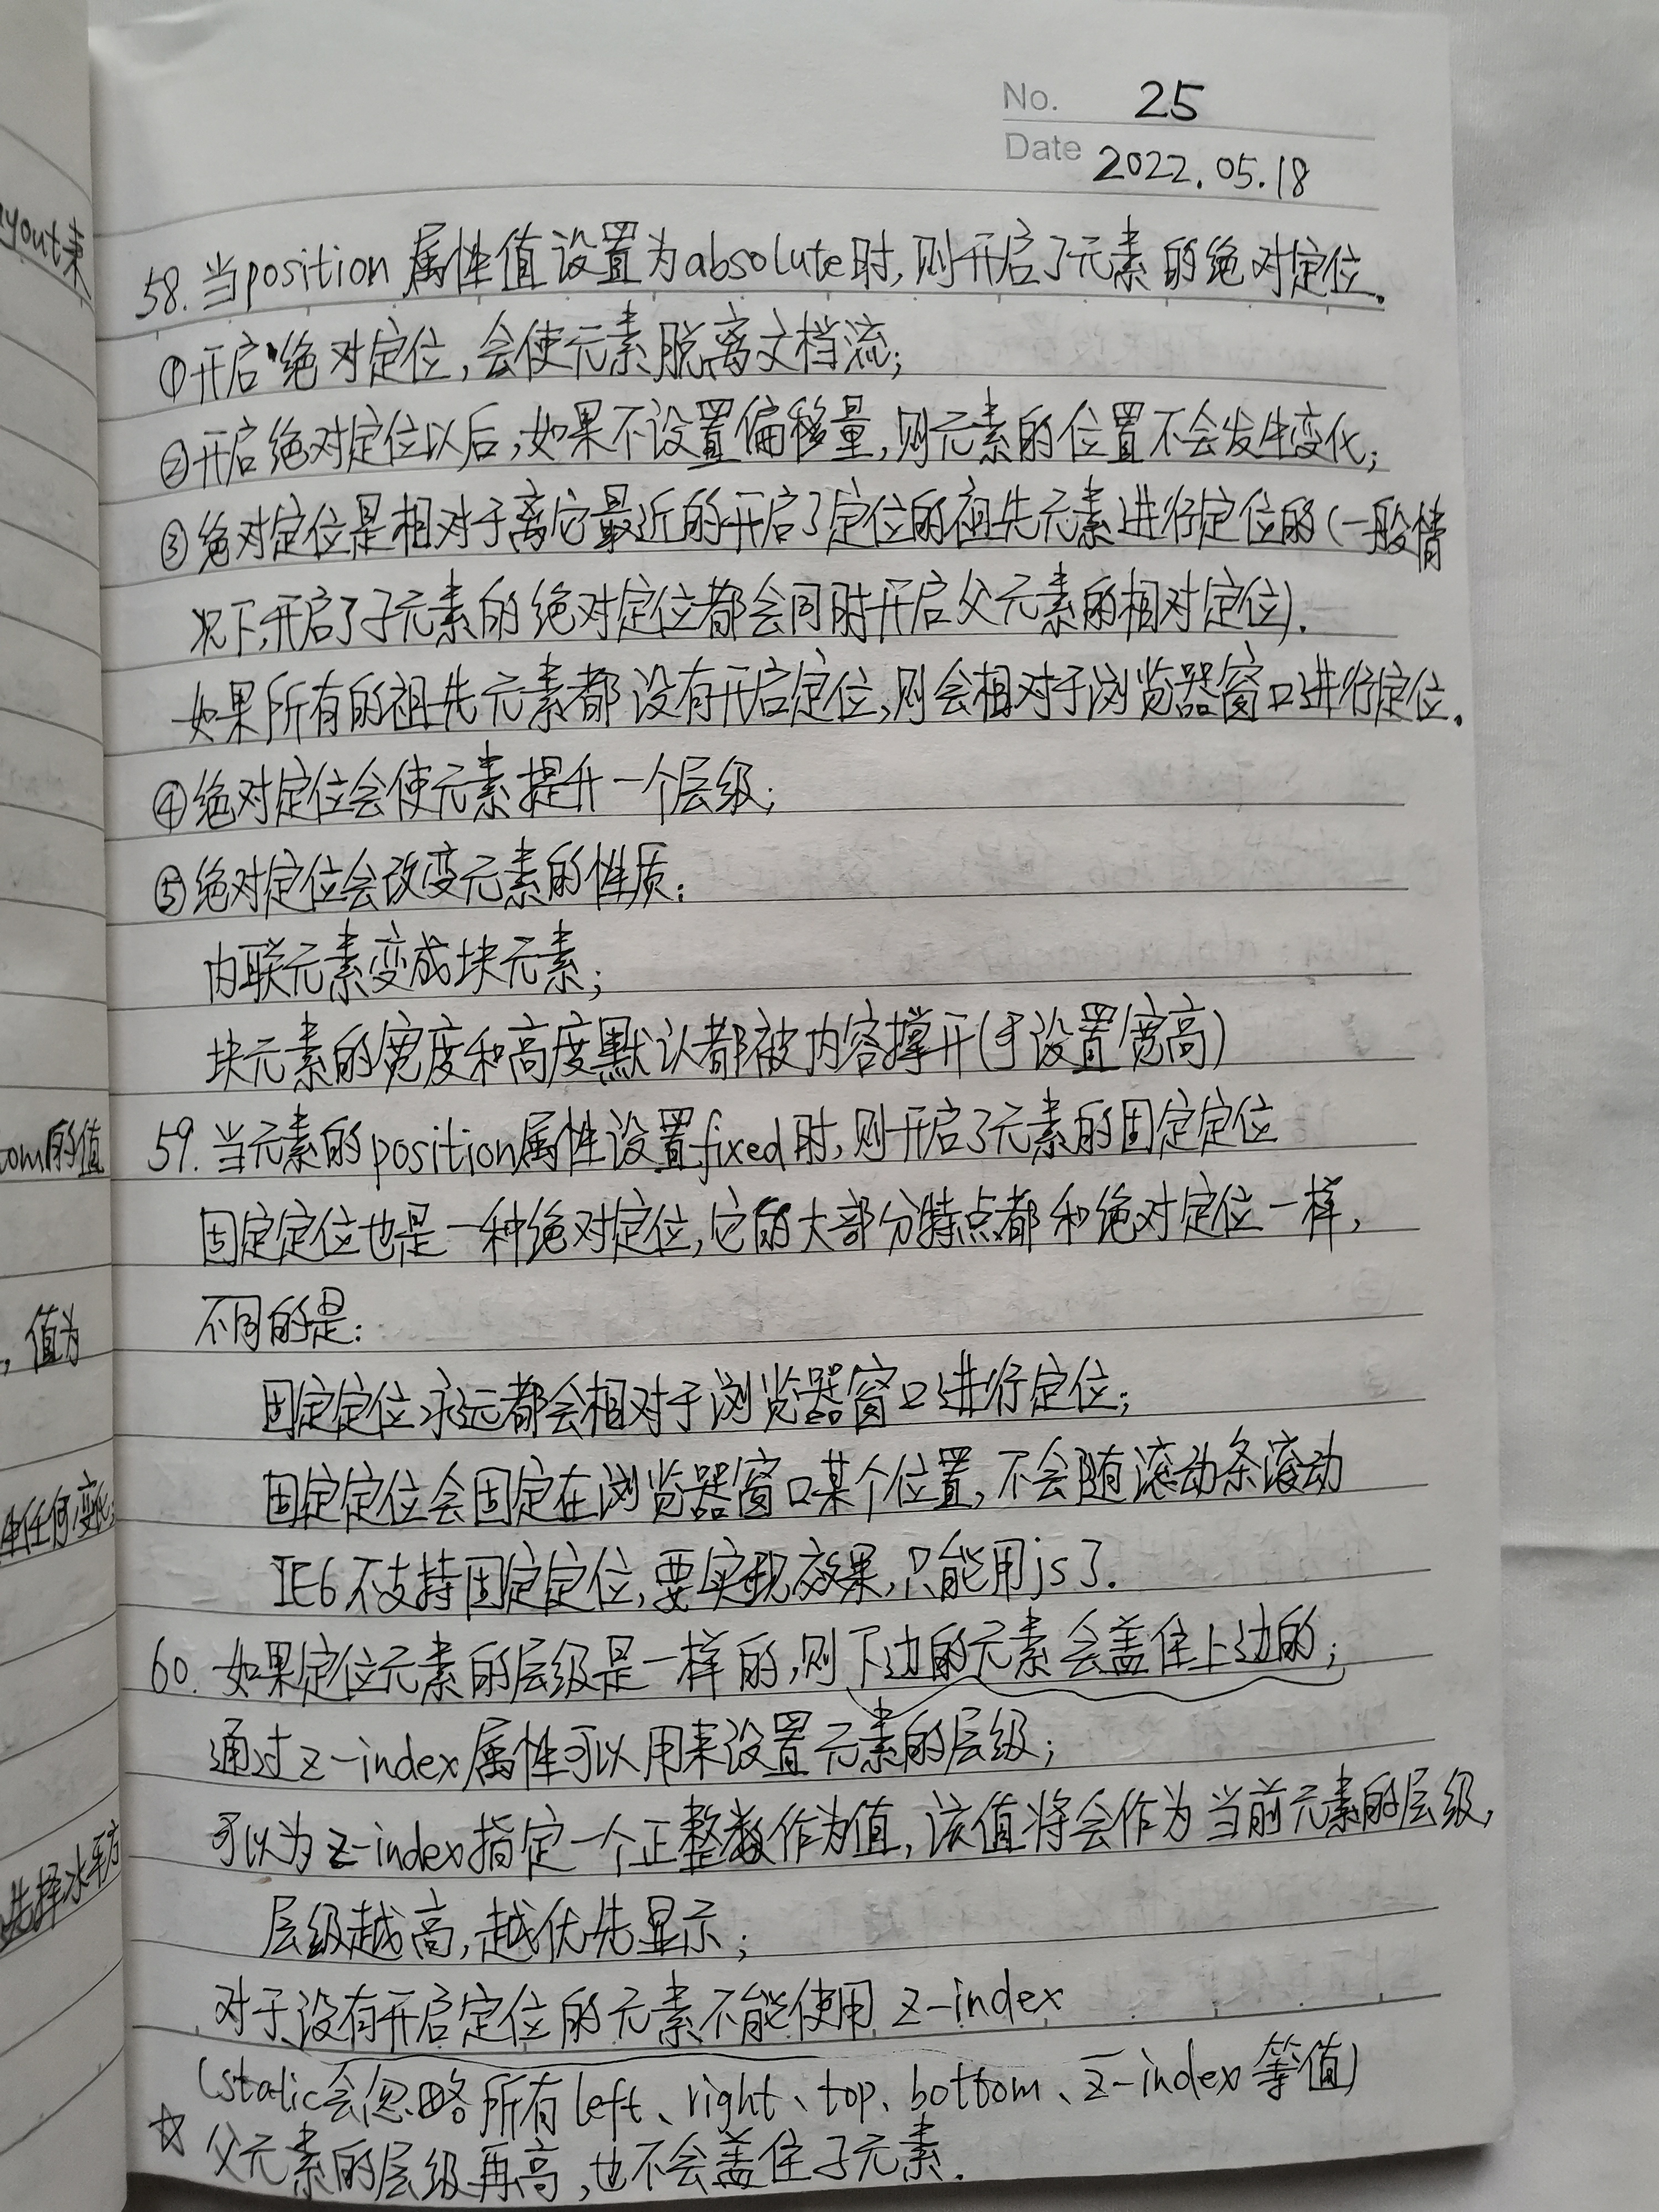 No. 25
Date 2022.05.18
58.当position属性值设置为absolute时,则开启了元素的绝对定位.
①开启绝对定位,会使元素脱离文档流;
②开启绝对定位以后,如果不设置偏移量,则元素的位置不会发生变化;
③绝对定位是相对于离它最近的开启了定位的祖先元素进行定位的(一般情
况下,开启了子元素的绝对定位都会同时开启父元素的相对定位).
如果所有的祖先元素都没有开启定位,则会相对于浏览器窗口进行定位.
④绝对定位会使元素提升一个层级;
⑤绝对定位会改变元素的性质:
内联元素变成块元素;
块元素的宽度和高度默认都被内容撑开(可设置宽高)
59.当元素的position属性设置fixed时,则开启了元素的固定定位
固定定位也是一种绝对定位,它的大部分特点都和绝对定位一样,
不同的是:
固定定位永远都会相对于浏览器窗口进行定位;
固定定位会固定在浏览器窗口某个位置,不会随滚动条滚动
IE6不支持固定定位,要实现效果,只能用js了.
60.如果定位元素的层级是一样的,则下边的元素会盖住上边的;
通过z-index属性可以用来设置元素的层级;
可以为z-index指定一个正整数作为值,该值将会作为当前元素的层级,
层级越高,越优先显示;
对于没有开启定位的元素不能使用z-index
(static会忽略所有left、right、top、bottom、z-index等值)
☆父元素的层级再高,也不会盖住子元素.
yout来
om的值
,值为
任何变化;
先择水平方